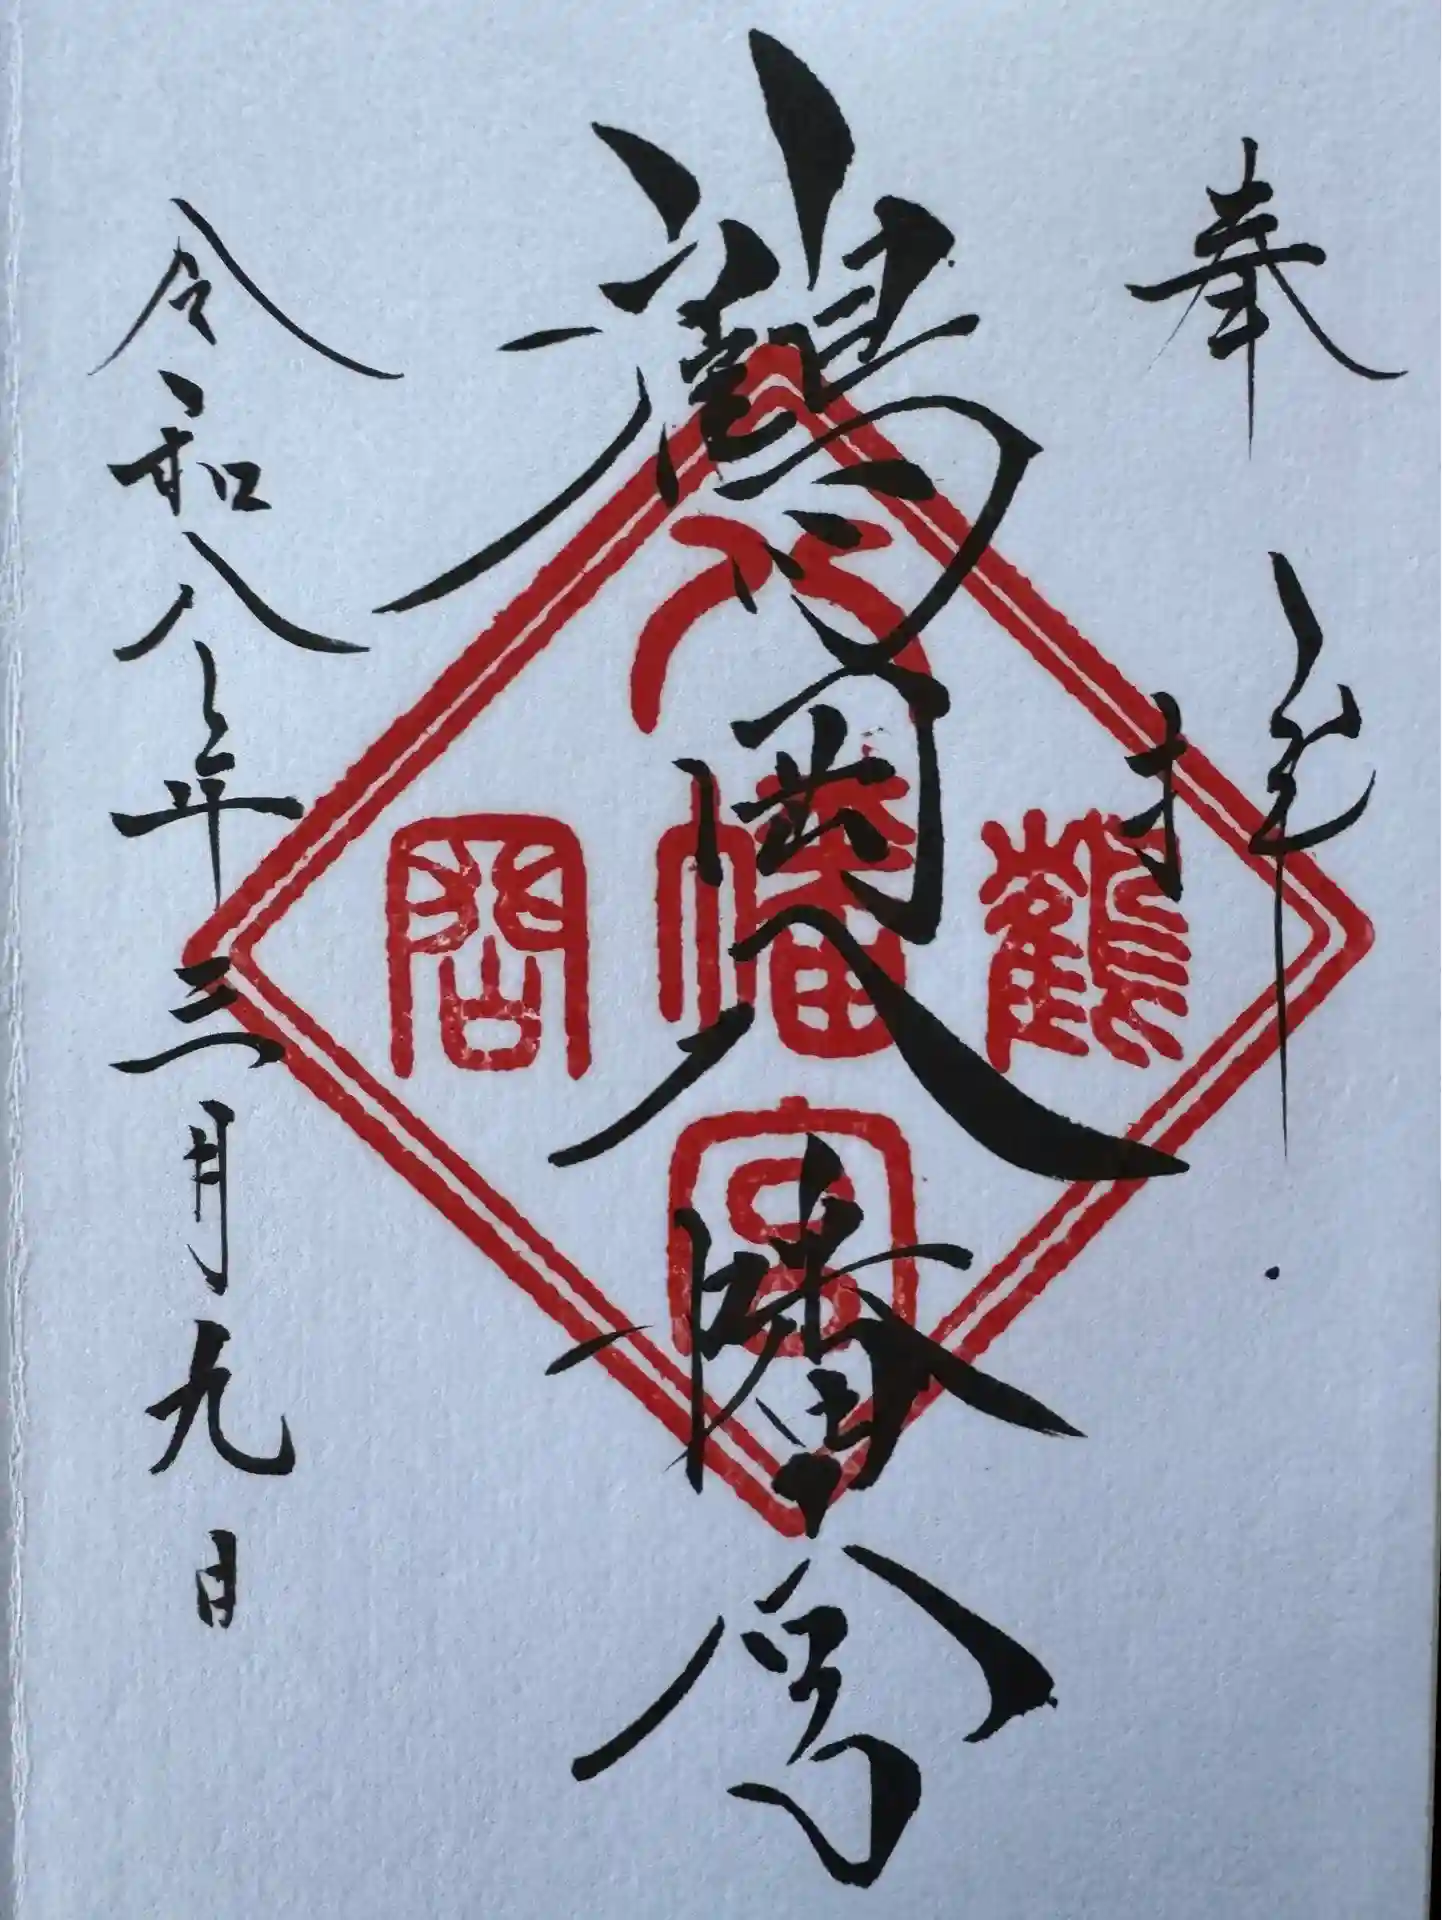 奉拝
鶴岡八幡宮
鶴岡八幡宮
令和八年三月九日